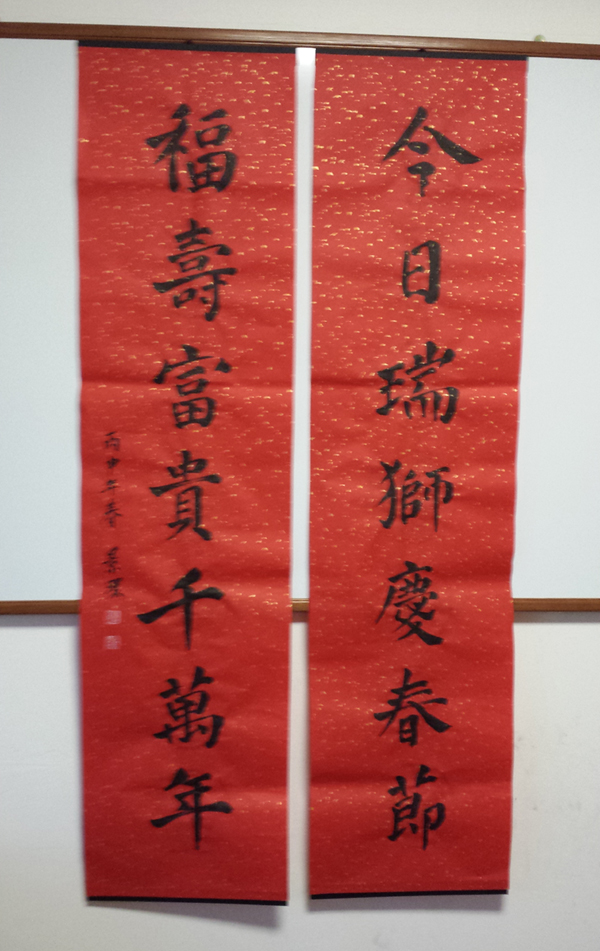 今日瑞獅慶春節
福壽富貴千萬年
丙申年春